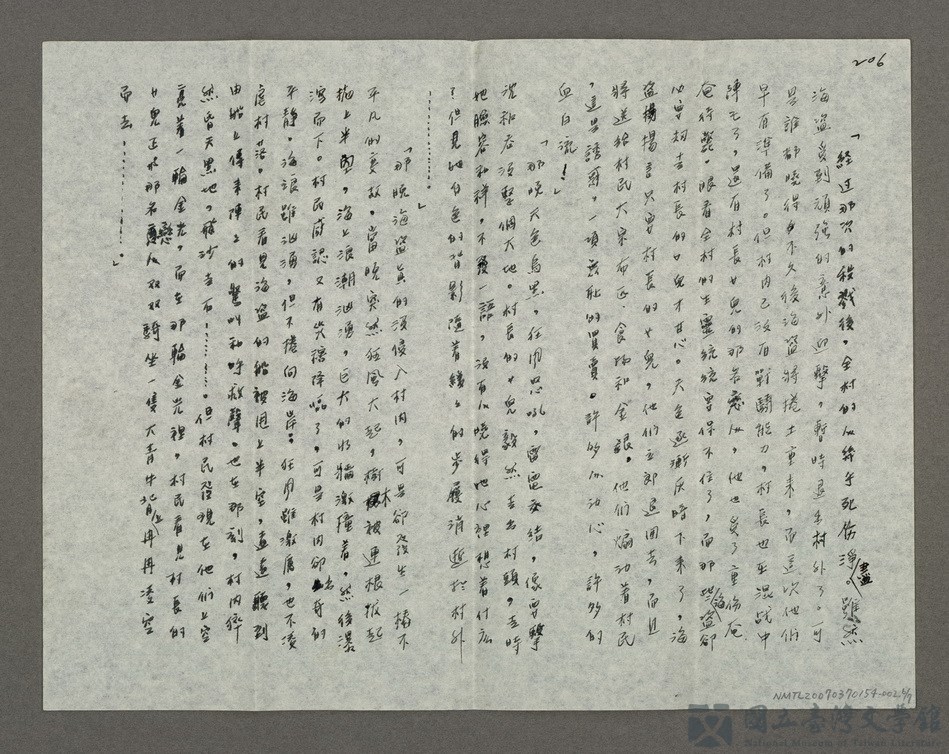 206
「経过那次的殺戮後,全村的人幾乎死伤淨盡。雖然
海盜受到頑强的意外迎擊,暫時退出村外了。可
是誰都曉得,不久後海盜將捲土重来,而這次他们
早有準備了。但村内已沒有戰鬪能力,村長也在混战中
陣亡了,還有村長女兒的那名戀人,他也負了重伤奄
奄待斃。眼看全村的生靈統統要保不住了,而那些海盜卻
以要刼去村長的女兒才甘心。天色逐漸灰暗下来了,海
盜揚揚言只要村長的女兒,他们立即退回去,而且
將送給村民大宗布匹、食物和金銀。他们煽动着村民
,這是誘惑,一項無恥的買賣。許多人动心,許多的
血白流!」
「那晚天色烏黑,狂風怒吼,雷電交結,像要擊
沈和吞沒整個大地。村長的女兒毅然走出村頭,臨時
她臉容和祥,不發一語,沒有人曉得她心裡想着什広
,但見她白色的背影隨着緩々的步履消逝於村外
…………」
「那晚海盜真的沒侵入村内,可是卻發生一樁不
平凡的変故。當晚突然狂風大起,樹木被連根拔起
拋上半空,海上浪潮汹湧,巨大的浪濤激撞着,然後瀑
瀉而下。村民咸認又有災禍降臨了,可是村内卻出奇的
平静。海浪雖汹湧,但不捲向海岸;狂風雖激厲,也不凌
虐村落。村民看見海盜的船被風上半空,遠遠聽到
由船上傳来陣々的驚叫和呼救聲。也在那刻,村内猝
然昏天黑地,飛沙走石………。但村民發現在他们上空
亮着一輪金光,而在那輪金光裡,村民看見村長的
女兒正於那名戀人双双騎坐一隻大青牛背上冉冉凌空
而去…………。」
NMTL20070370154-002
國立臺灣文學館
National Museum of Taiwan Literature